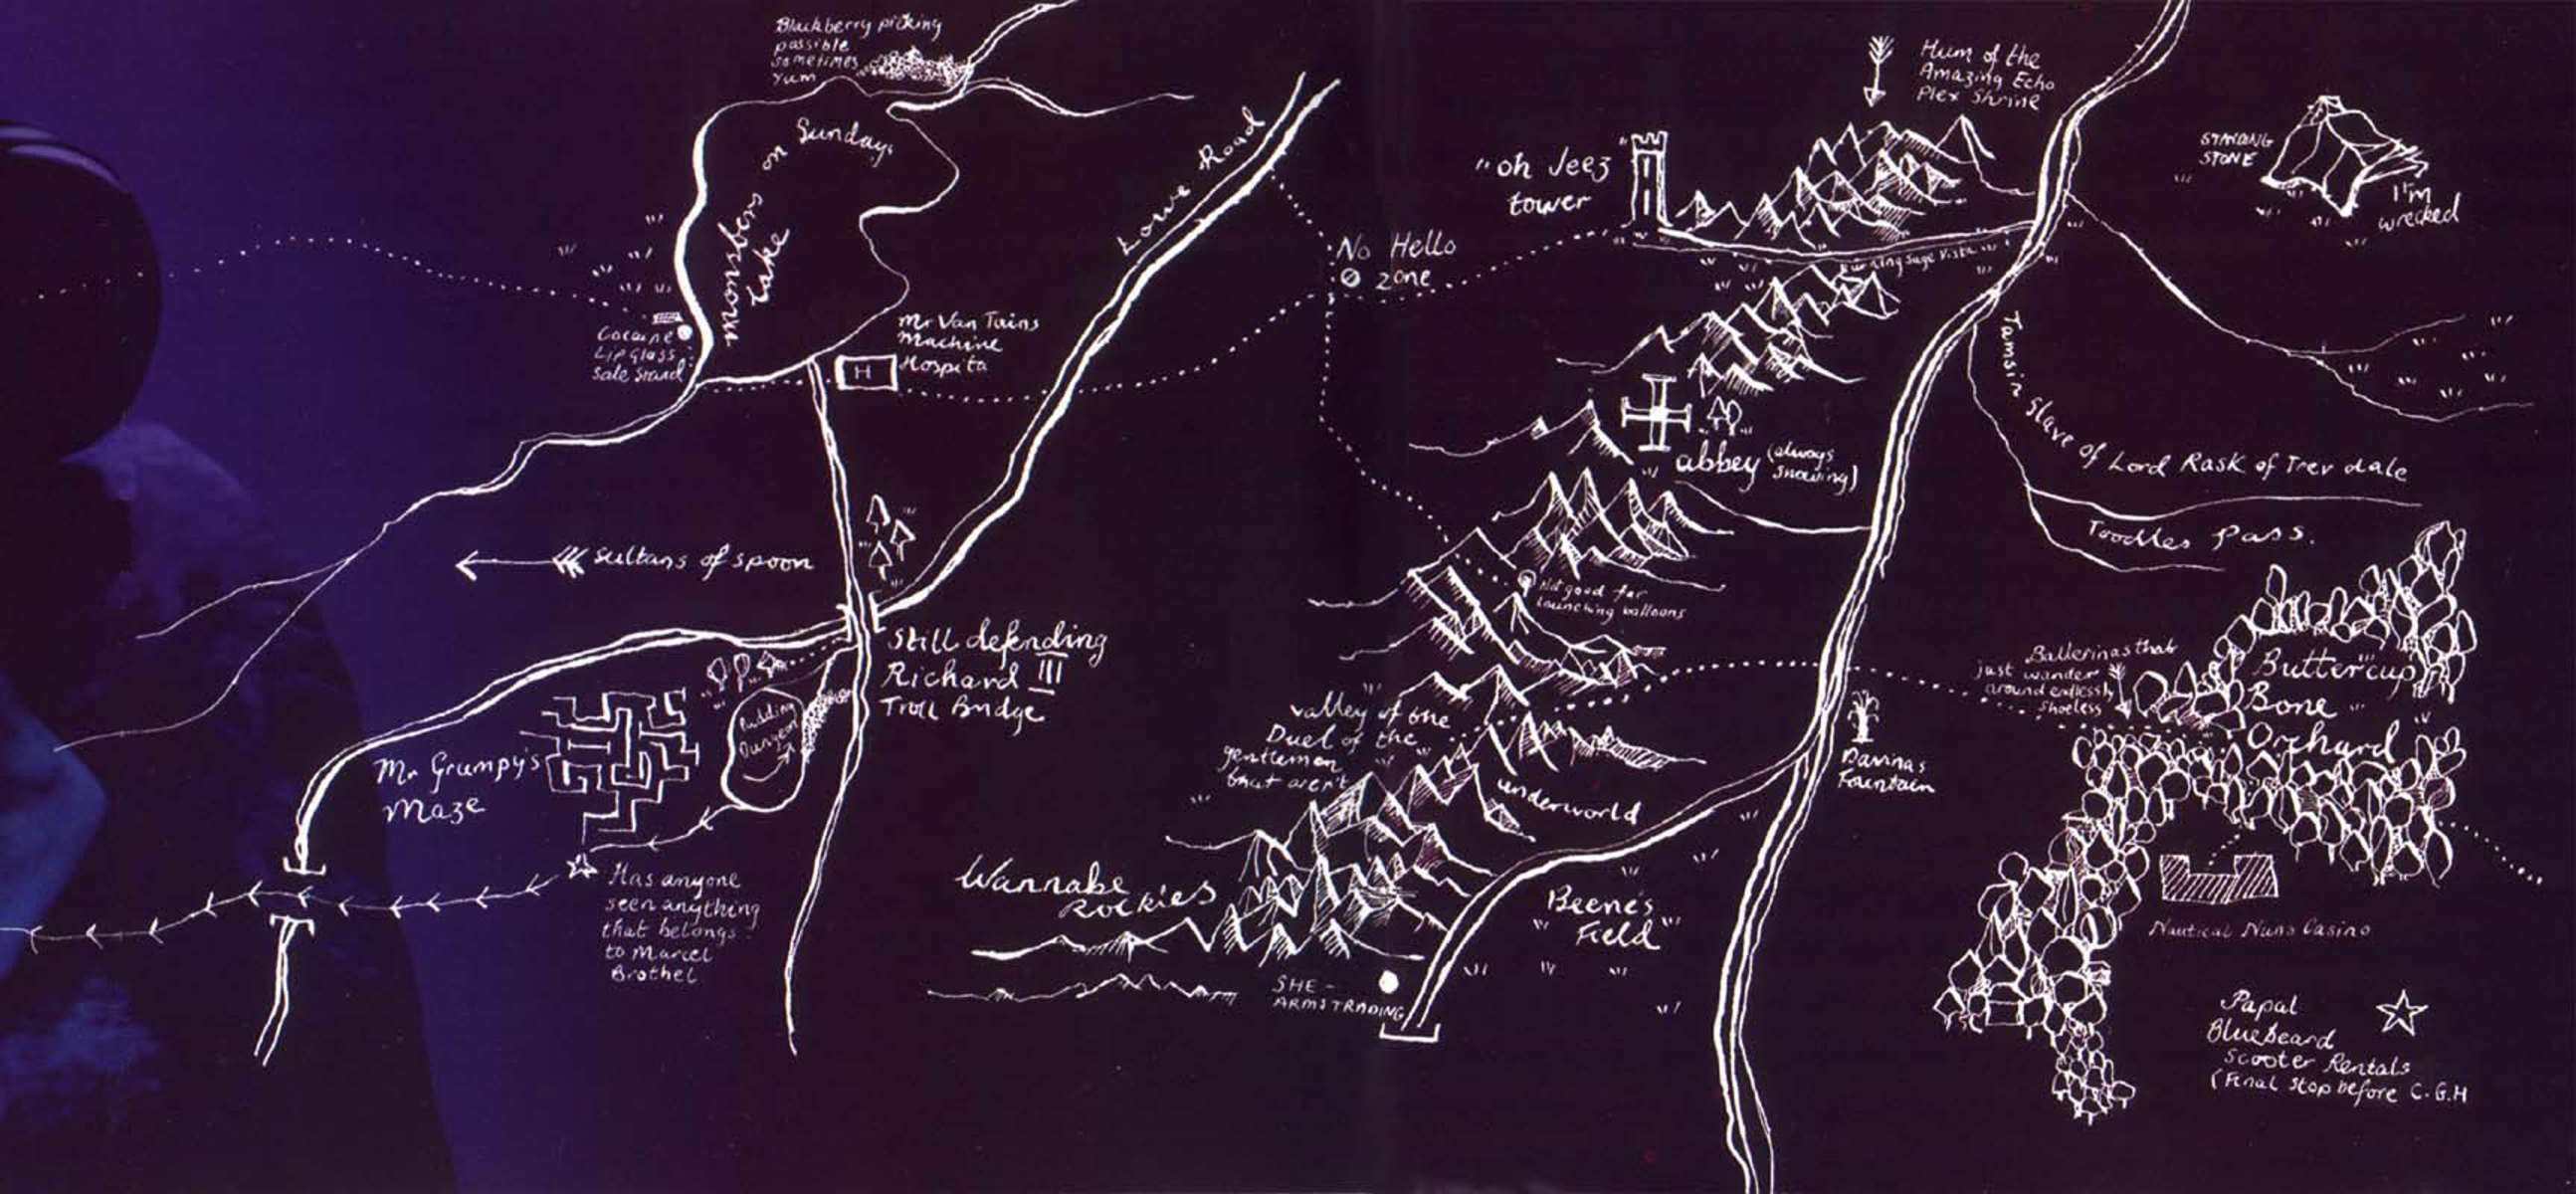 Blackberry picking
possible
sometimes
Yum
mournsbers on Sundays
Lake
Cocaine
Lip Glass
Sale Stand
Mr Van Tains
Machine
Hospita
H
Lowe Road
sultans of spoon
Still defending
Richard III
Troll Bridge
Pudding
Dungeon
Mr Grumpy's
Maze
Has anyone
seen anything
that belongs
to Marcel
Brothel
No Hello
zone
"oh Jeez"
tower
Hum of the
Amazing Echo
Plex Shrine
Burning Sage Vista
STANDING
STONE
I'M
wrecked
abbey (always
snowing)
Tamsin Slave of Lord Rask of Trevdale
Toodles Pass.
Not good for
launching balloons
valley of the
Duel of the
gentlemen
that aren't
underworld
Wannabe
Rockies
SHE-
ARMSTRADING
Beene's
Field
Davinas
Fountain
Ballerinas that
just wander
around endlessly
shoeless
Buttercup
Bone
Orchard
Nautical Nuns Casino
Papal
Bluebeard
Scooter Rentals
(Final stop before C.G.H